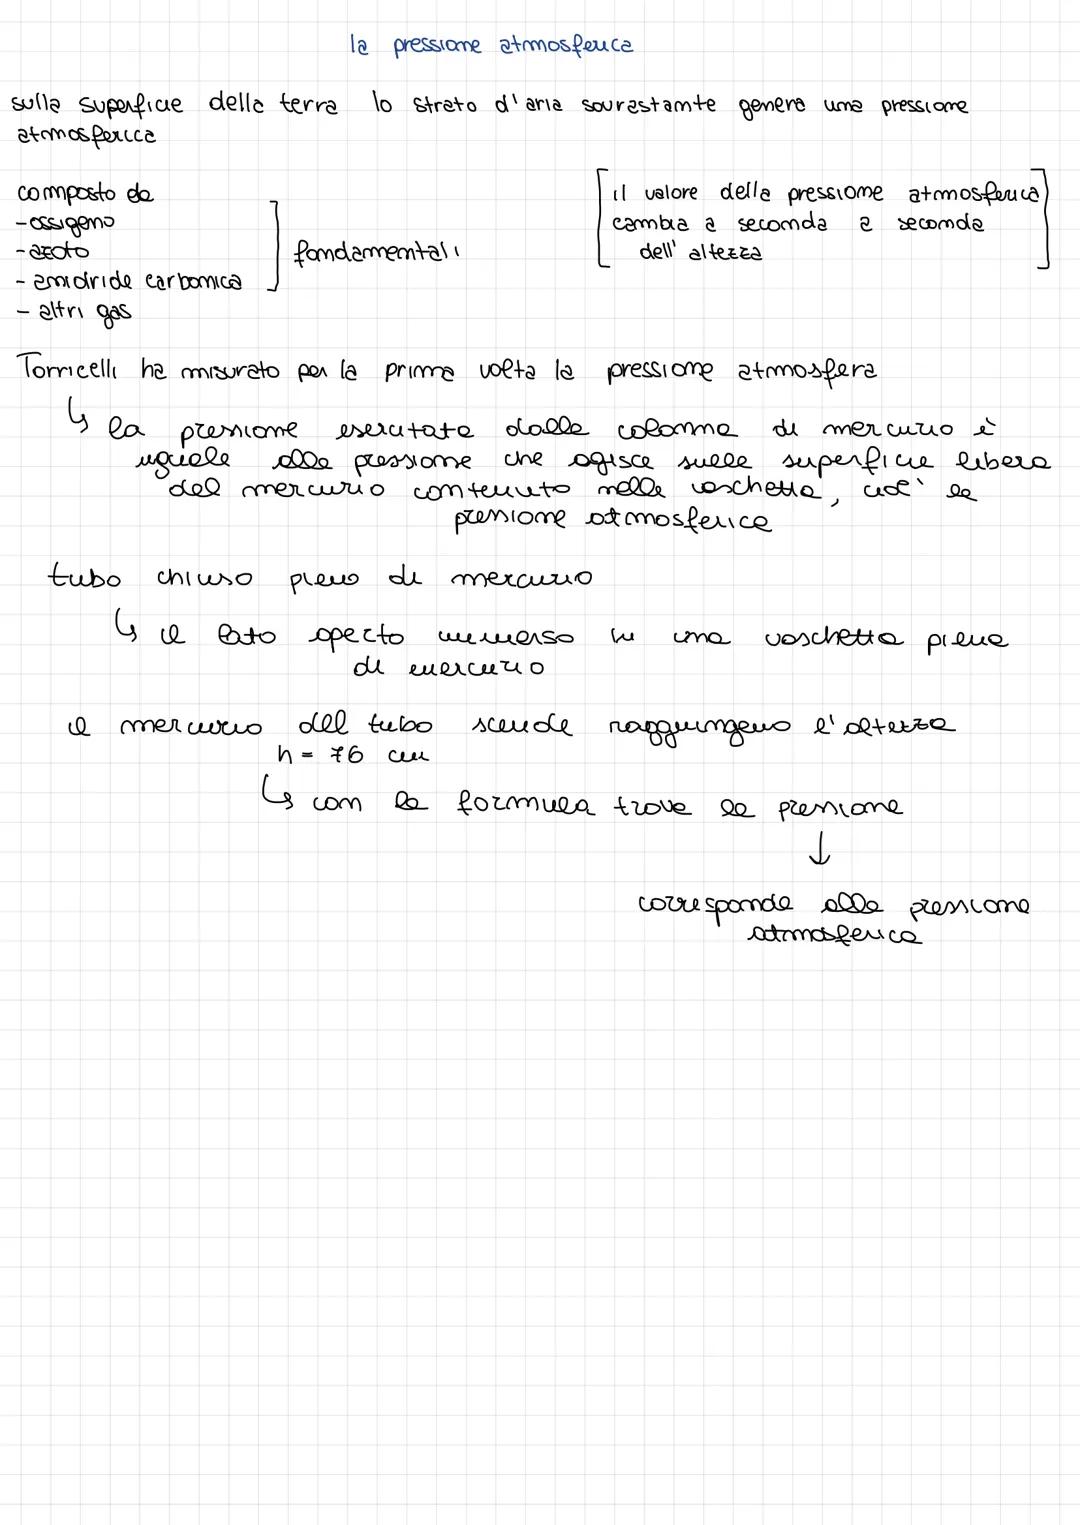 la pressione atmosferica
sulla superficie della terra lo strato d'aria sovrastante genera una pressione
atmosferica
composto da
- ossigeno
- azoto
- anidride carbonica
- altri gas
fondamentali
il valore della pressione atmosferica
cambia a seconda a seconda
dell'altezza
Torricelli ha misurato per la prima volta la pressione atmosfera
↳ la pressione esercitata dalla colonna di mercurio è
uguale alla pressione che agisce sulla superficie libera
del mercurio contenuto nella vaschetta, cioè la
pressione atmosferica
tubo chiuso pieno di mercurio
↳ il lato aperto immerso in una vaschetta piena
di mercurio
il mercurio del tubo scende raggiungeno l'altezza
h = 76 cm
↳ con la formula trova la pressione
↓
corrisponde alla pressione
atmosferica